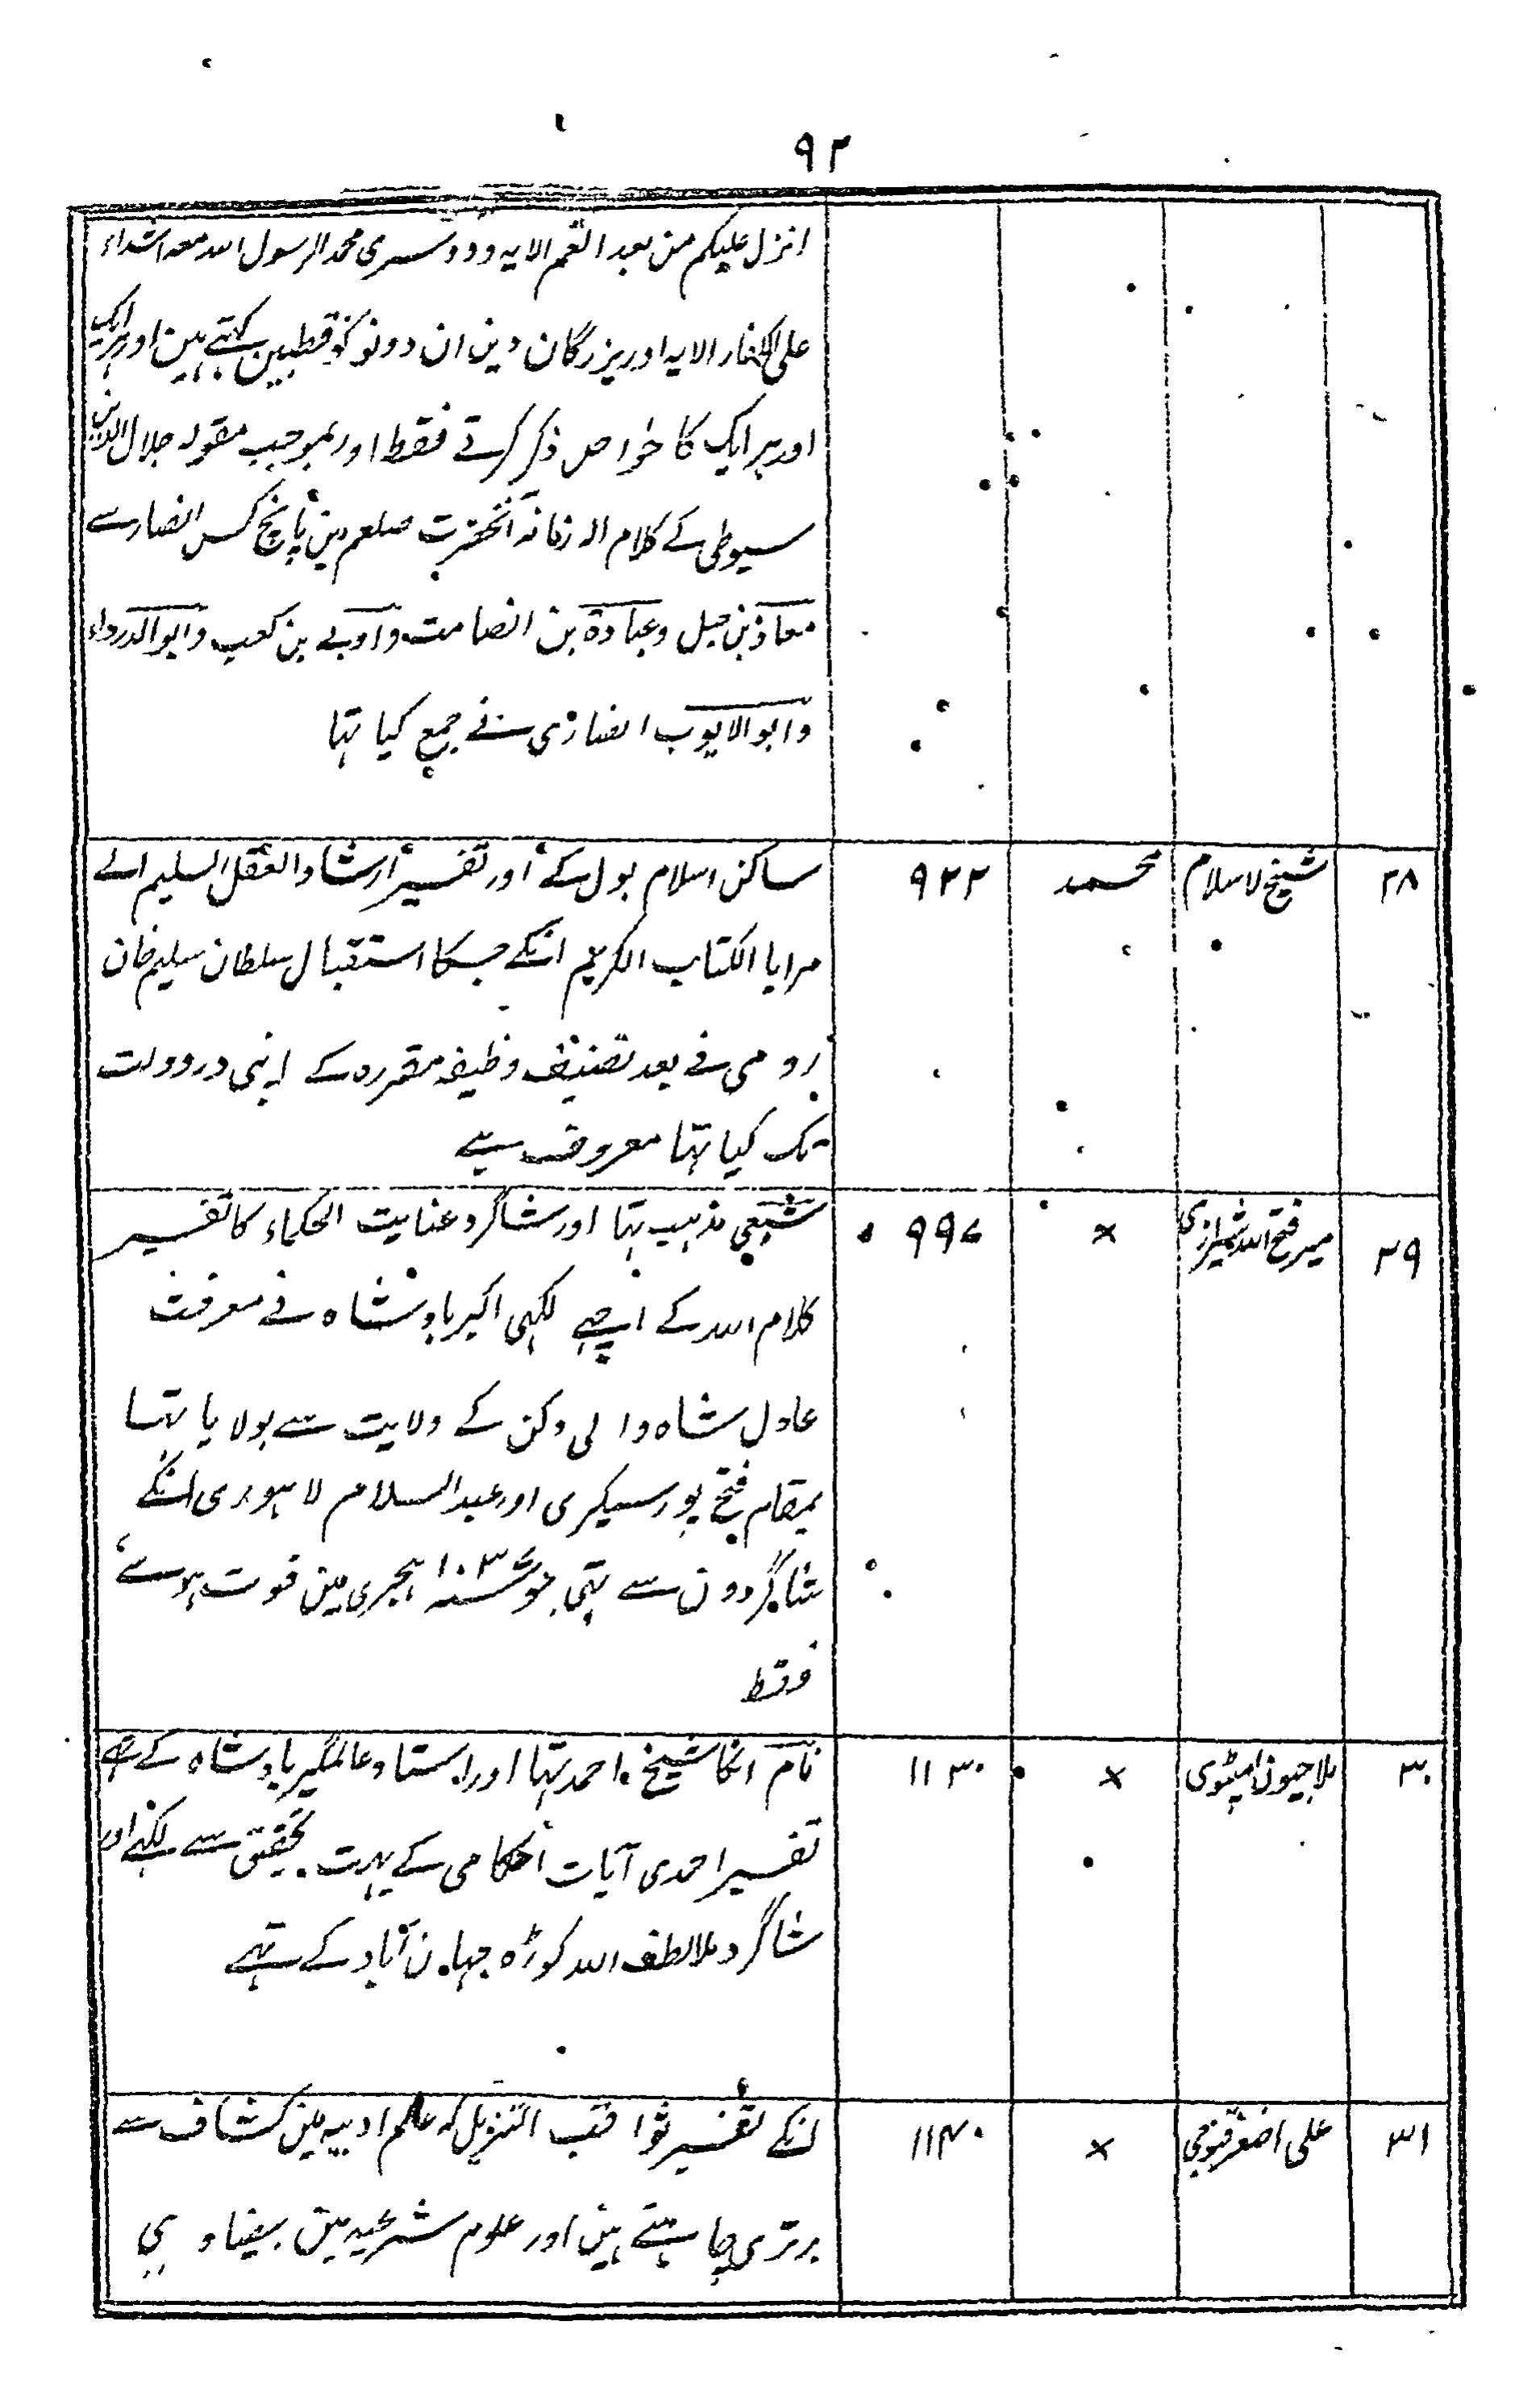 ۹۲
انزل علیکم من بعد الغم الایہ ودوسری محمد الرسول اللہ معہ اشداء
علی الکفار الایہ اور بزرگان دین ان دونو کو قطبین کہتے ہین اور ہر ایک
اور ہر ایک کا خواص ذکر کرتے فقط اور بموجب مقولہ جلال الدین
سیوطی کے کلام اللہ زمانہ آنحضرت صلعم مین پانچ کس انصار سے
معاذ بن جبل وعبادۃ بن الصامت وابے بن کعب وابو الدرداء
وابو الایوب انصاری نے جمع کیا تہا
۲۸ شیخ لاسلام محمد ۹۲۲ ساکن اسلام بول کے اور تفسیر ارشاد العقل السلیم الے
مرایا الکتاب الکریم انکے جسکا استقبال سلطان سلیم خان
رومی نے بعد تصنیف وظیفہ مقررہ کے اپنی در دولت
تک کیا تہا معروف ہے
۲۹ میر فتح اللہ شیرازی × ۹۹۷ شیعی مذہب تہا اور شاگرد عنایت الحکماء کا تفسیر
کلام اللہ کے اچہے لکہی اکبر بادشاہ نے معرفت
عادل شاہ والی دکن کے ولایت سے بولایا تہا
بمقام فتح پور سیکری اور عبد السلام لاہوری انکے
شاگردون سے تہی جو ۱۰۳ ہجری مین فوت ہوے
فقط
۳۰ ملا جیون امیٹہوی × ۱۱۳۰ نام انکا شیخ احمد تہا اور استاد عالمگیر بادشاہ کے تہے
تفسیر احمدی آیات احکامی کے بہت تحقیق سے لکہے اور
شاگرد ملا لطف اللہ کوڑہ جہان آباد کے تہے
۳۱ علی اصغر قنوجی × ۱۱۴۰ انکے تفسیر ثواقب التنزیل کہ علم ادبیہ مین کشاف سے
برتری چاہتے ہین اور علوم شرعیہ مین بیضاوی